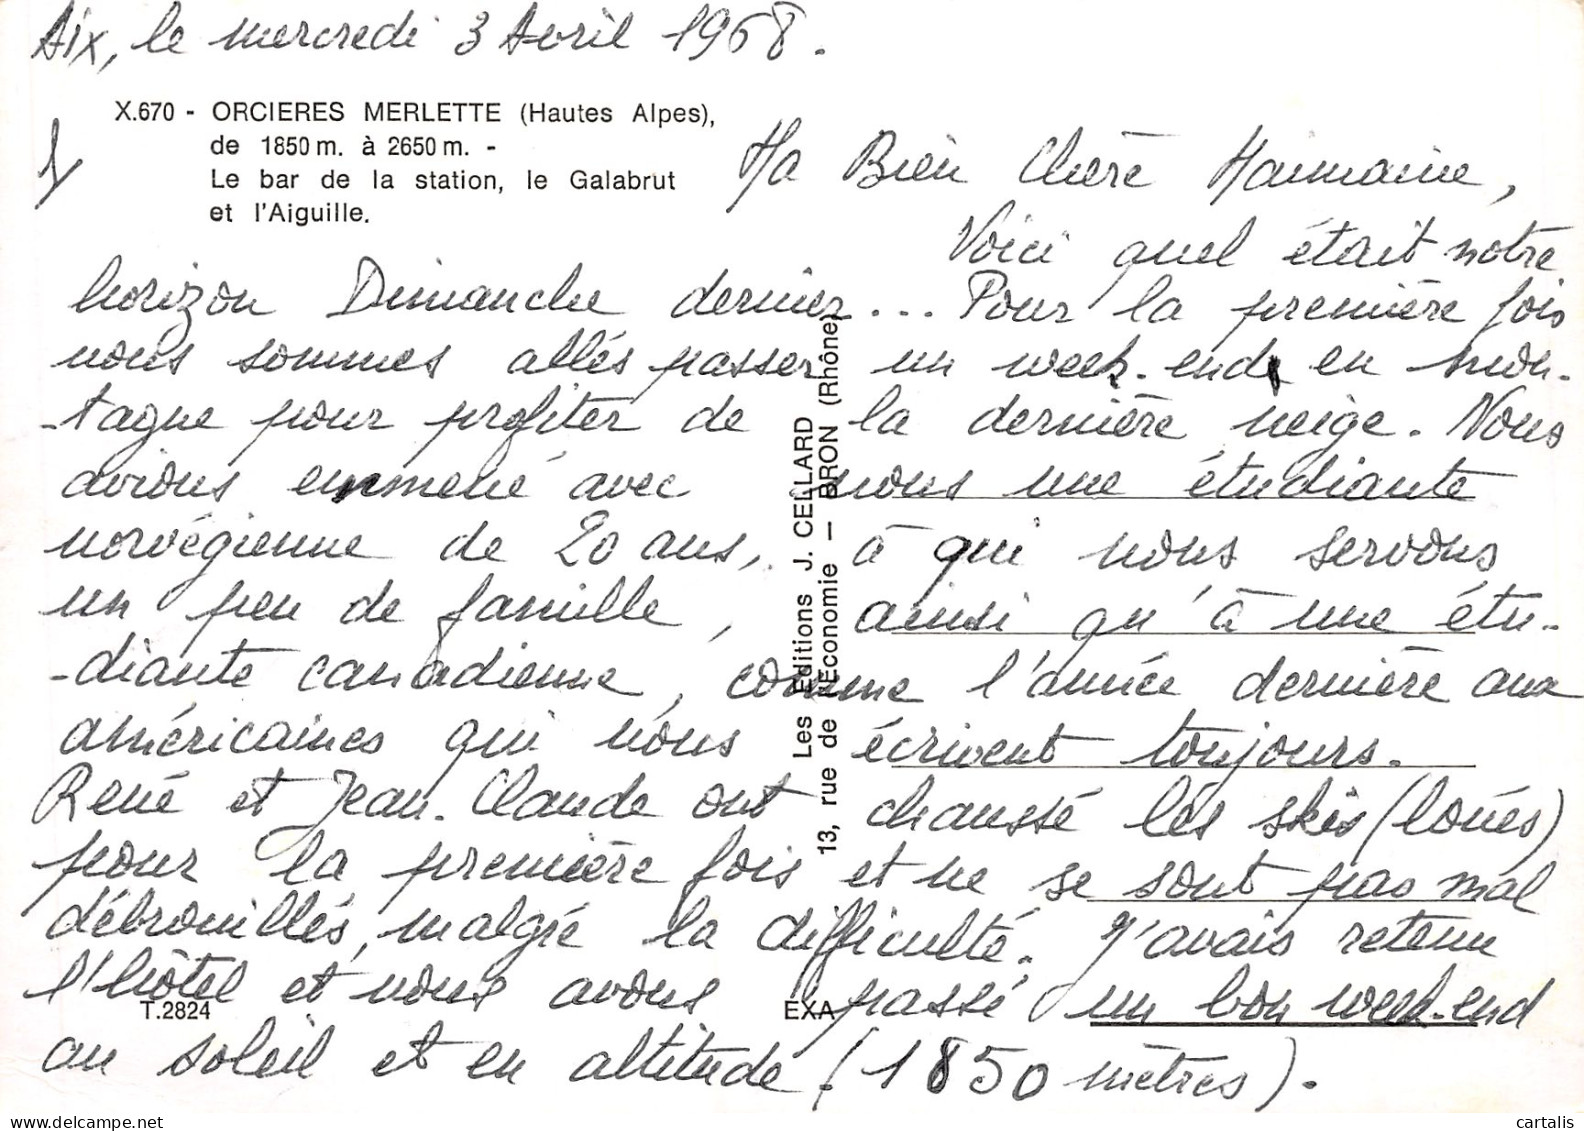 Aix, le mercredi 3 Avril 1968.
X.670 - ORCIERES MERLETTE (Hautes Alpes),
de 1850 m. à 2650 m. -
Le bar de la station, le Galabrut
et l'Aiguille.
1
Ma Bien Chère Mamaine,
Voici quel était notre
horizon Dimanche dernier... Pour la première fois
nous sommes allés passer un week-end en mon-
-tagne pour profiter de la dernière neige. Nous
avions emmené avec nous une étudiante
norvégienne de 20 ans, à qui nous servons
un peu de famille, ainsi qu'à une étu-
-diante canadienne, comme l'année dernière aux
américaines qui nous écrivent toujours.
René et Jean-Claude ont chaussé les skis (loués)
pour la première fois et ne se sont pas mal
débrouillés, malgré la difficulté. J'avais retenu
l'hôtel et nous avons passé un bon week-end
au soleil et en altitude (1850 mètres).
Les Editions J. CELLARD
13, rue de l'Economie — BRON (Rhône)
T.2824
EXA
cartalis